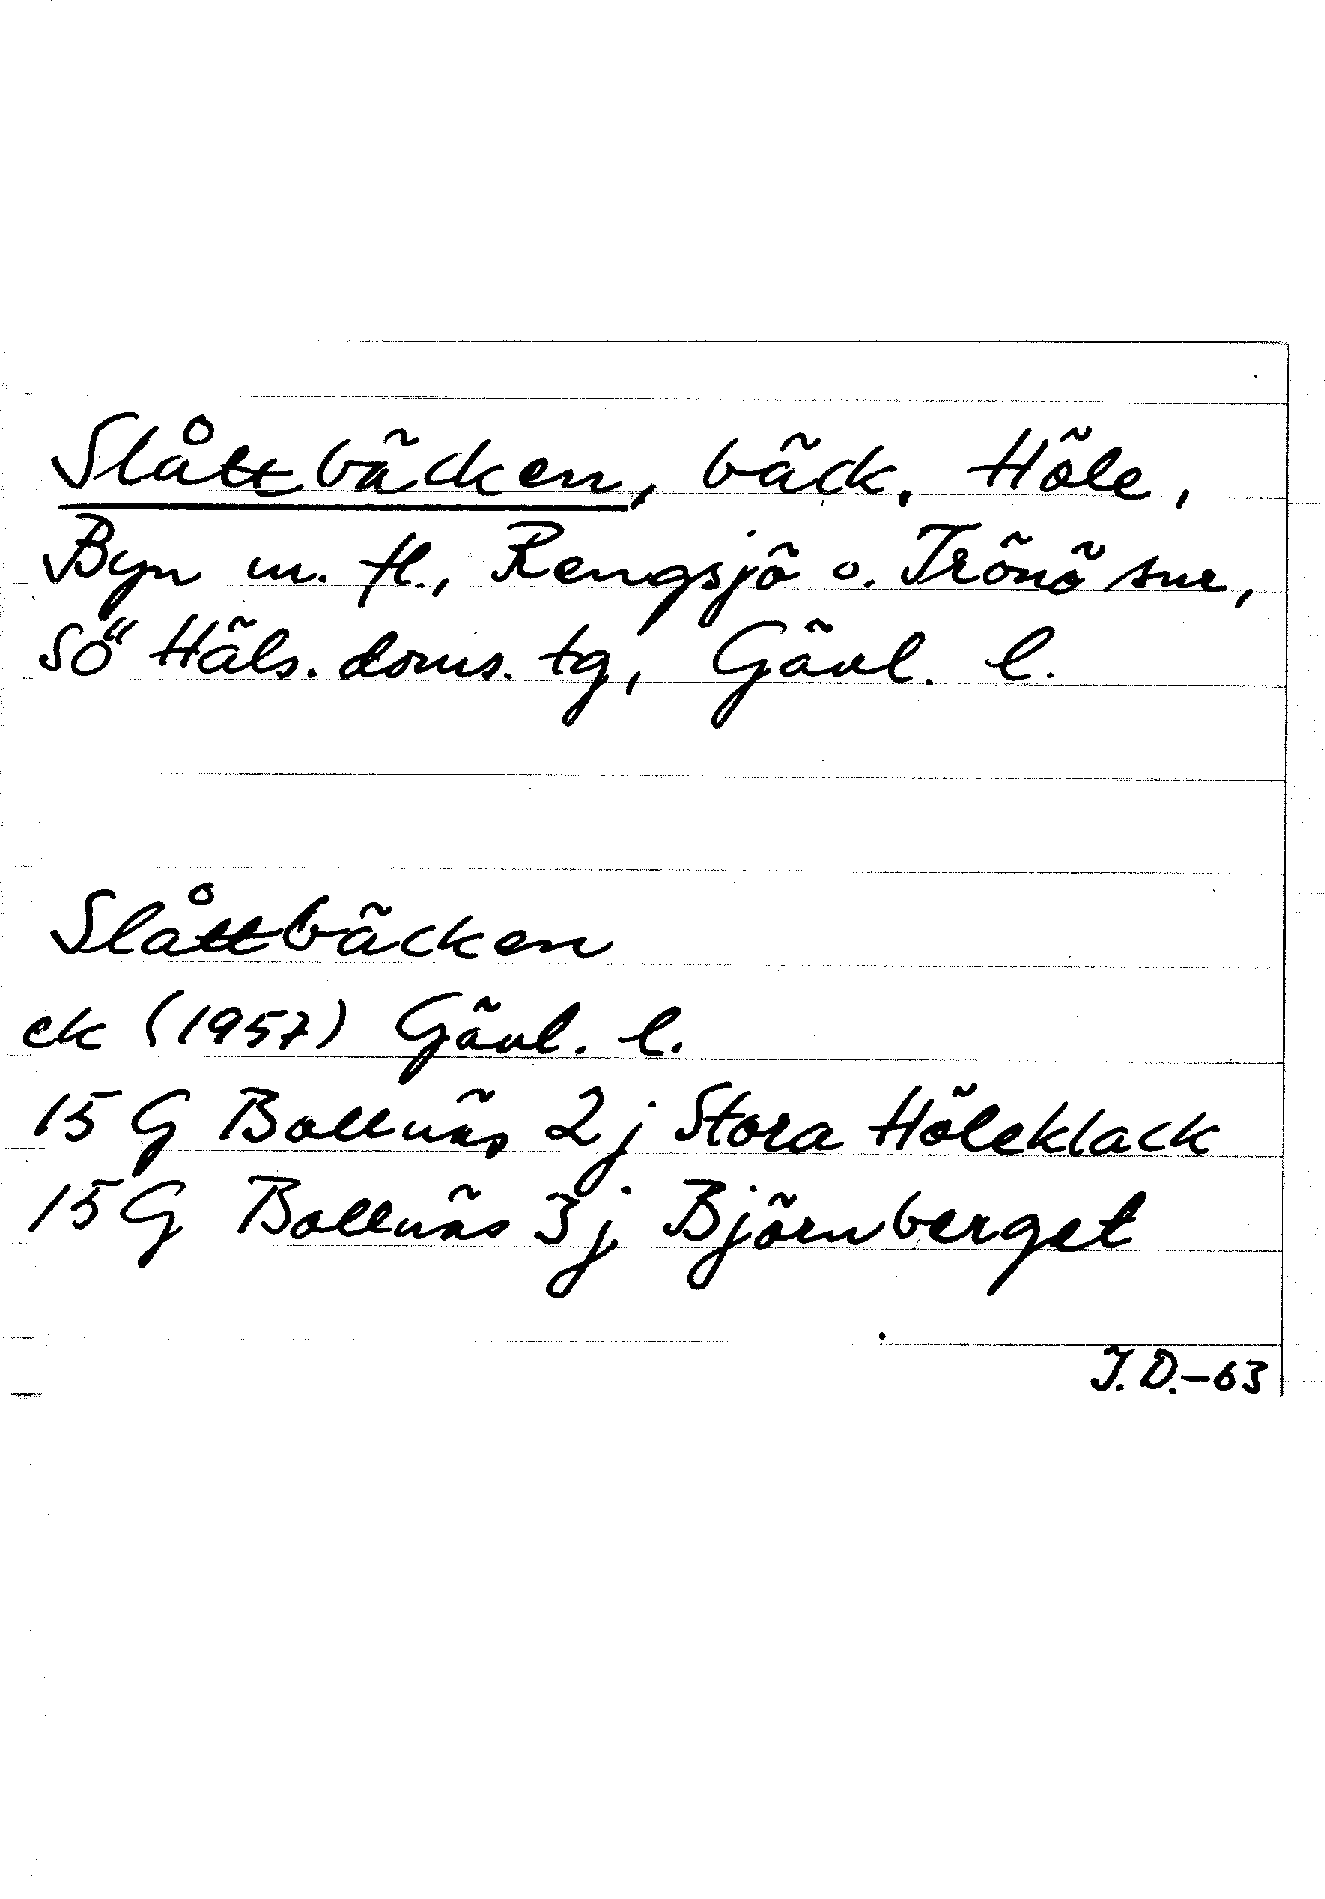 Slåttbäcken, bäck. Höle,
Byn m. fl., Rengsjö o. Trönö snr,
SÖ Häls. doms. tg, Gävl. l.
Slåttbäcken
ek (1957) Gävl. l.
15 G Bollnäs 2 j Stora Höleklack
15 G Bollnäs 3 j Björnberget
I.D.-63